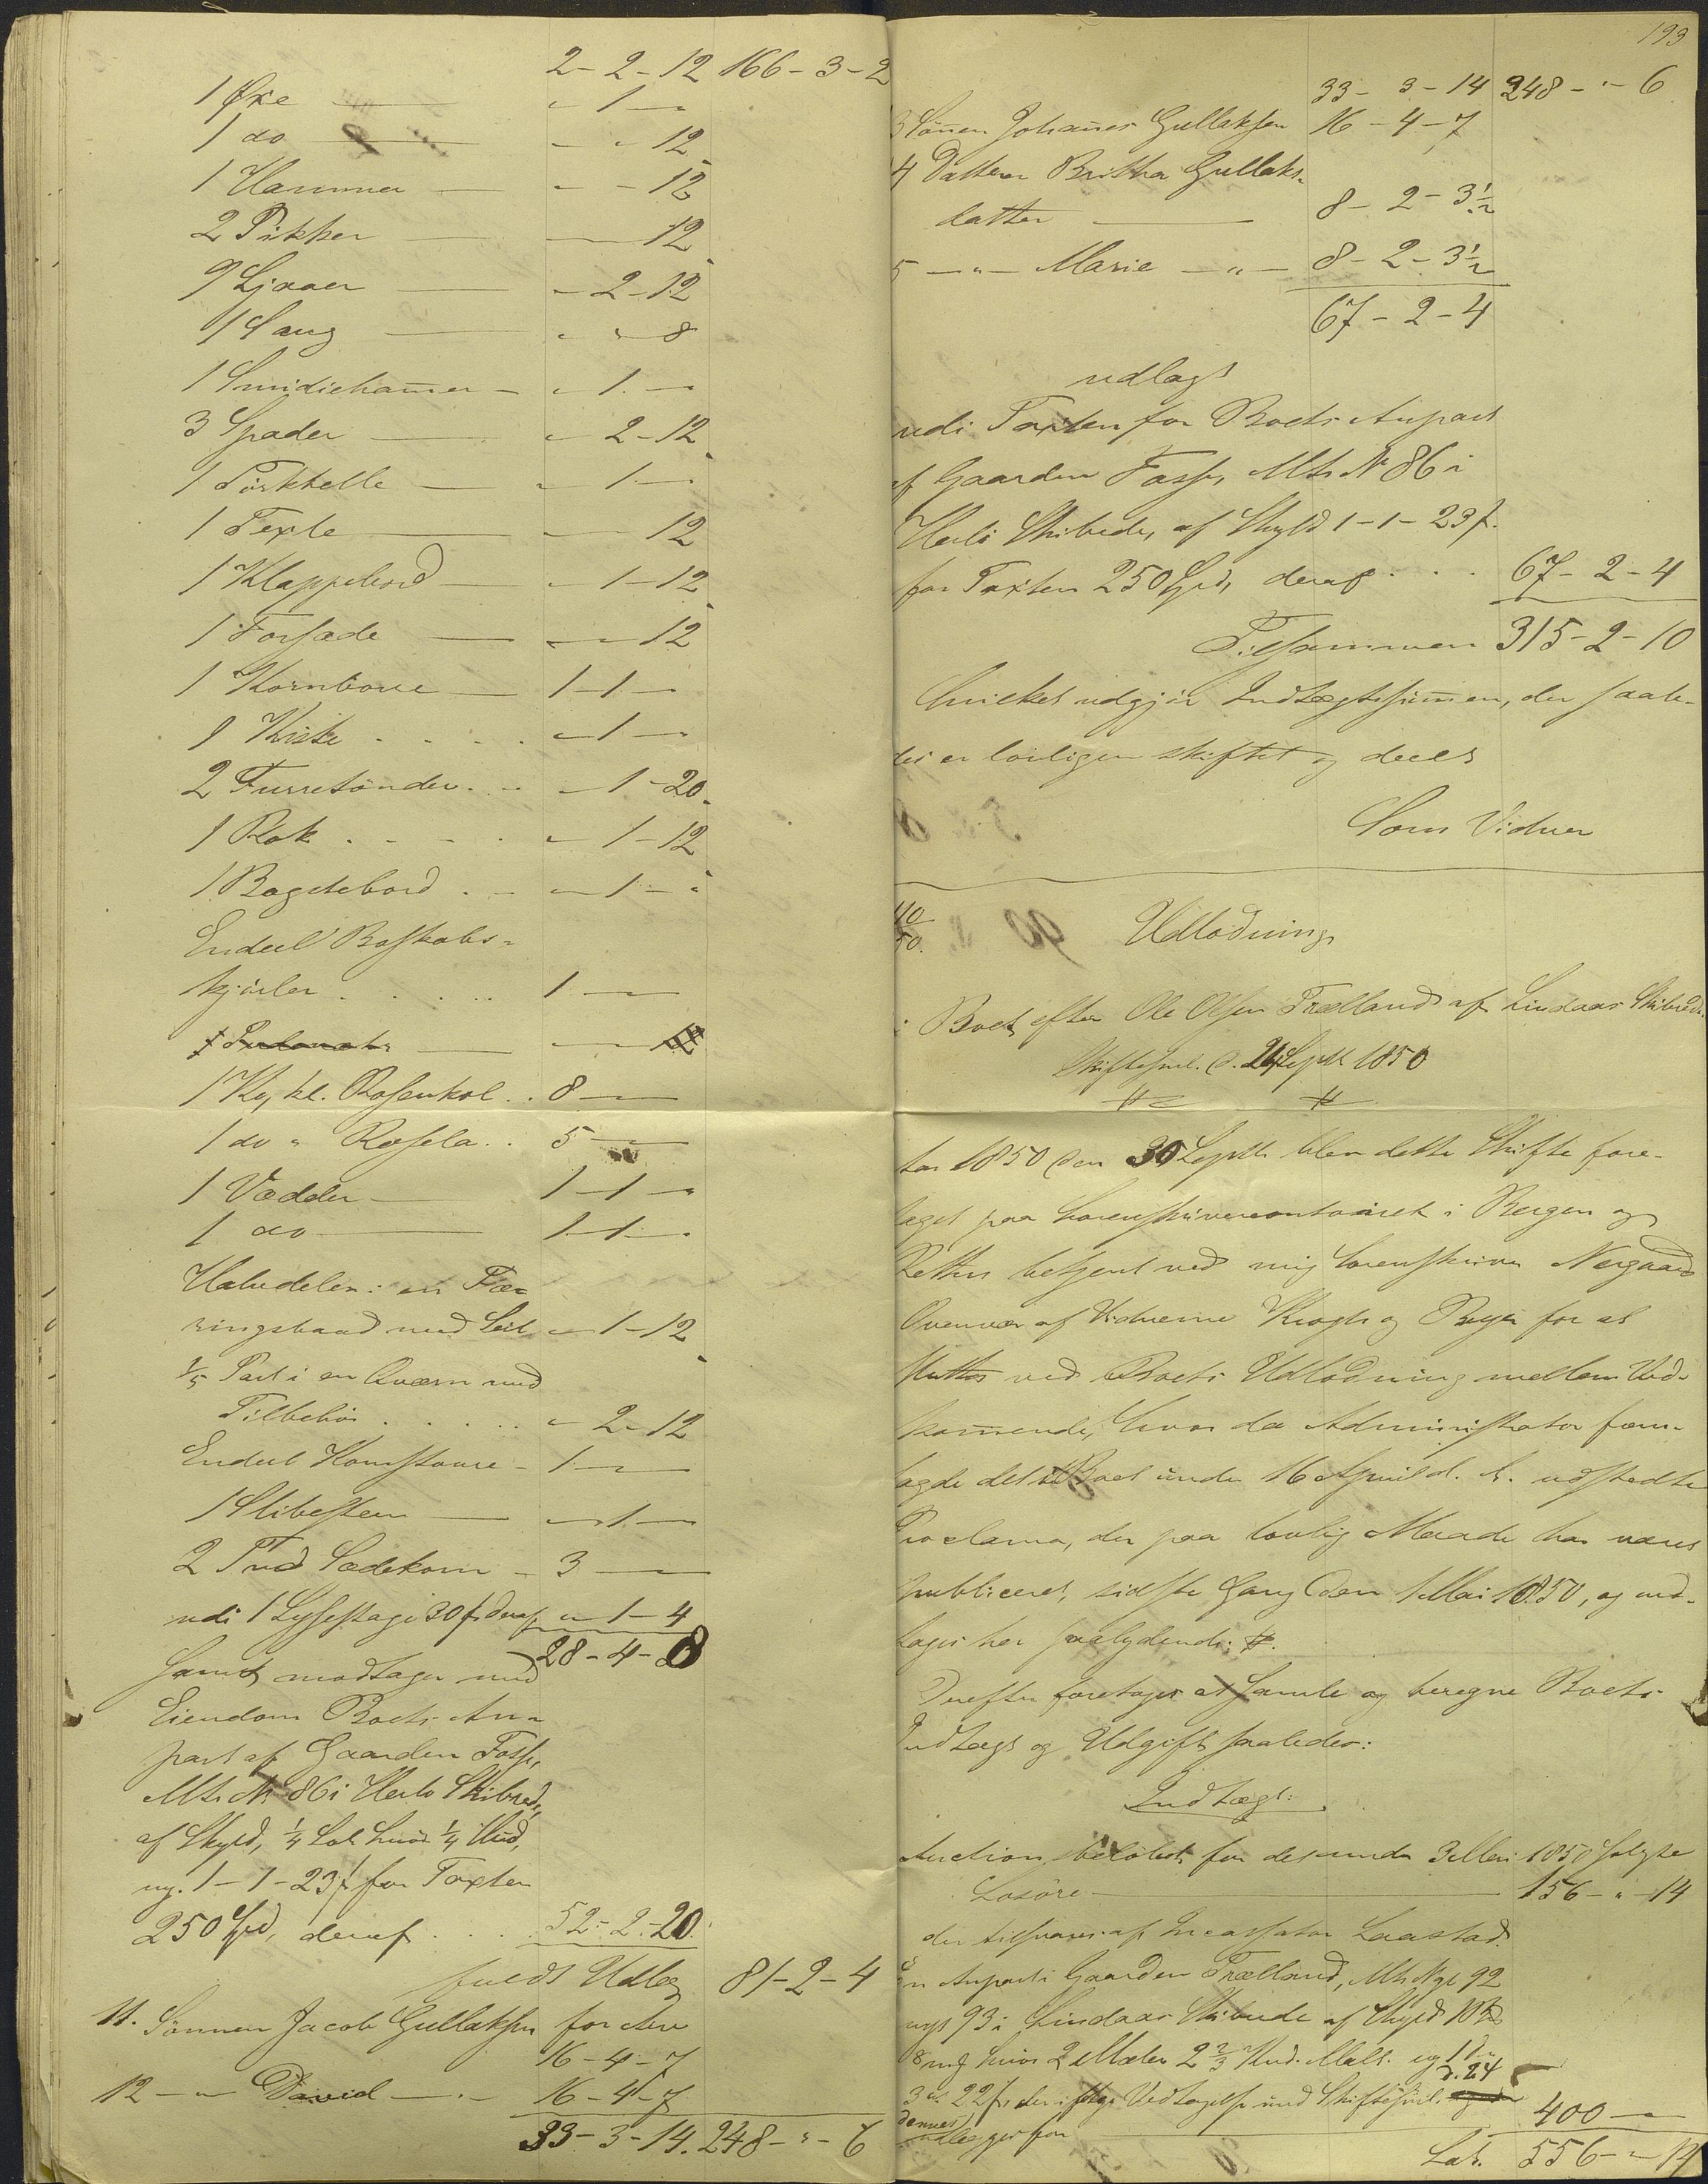 2-2-12 166-3-2
1 Øxe — " 1 —
1 do — - " 12
1 Hammer — - - 12
2 Pikker — 12
9 Ljaaer — - 2-12
1 Saug — " " 8
1 Smidiehamer - " 1 —
3 Spader — " 2-12
1 Tørkhelle — " 1 —
1 Texle — 12
1 Klappebord — " 1-12
1 Forsæde — 12
1 Kornboue — 1-1-
1 Kiste . . . . " 1 —
2 Turretønder . . - 1-20
1 Rok . . . . " 1-12
1 Bagstebord . . - 1 - "
Endeel Boskabs-
kjørler . . . . . 1 —
1 Ko, kl. Rosenkol . . 8 —
1 do " Rosela . . 5 —
1 Vædder — 1-1-"
1 do — 1-1-
Halvdelen i en Fæ-
ringsbaad med Seil " 1-12
1/5 Part i en Qværn med
Tilbehør . . . . . " 2-12
Endeel Kornstaure - 1 —
1 Slibesteen — 1 —
2 Tnd Sædekorn - 3 —
udi 1 Lyssestage 30 s, deraf " 1-4
28-4-8
samt modtager med
Eiendom Boets An-
part af Gaarden Fosse,
Mtr. No 86 i Herlø Skibrede,
af Skyld, 1/4 Løb Smør 1/4 Hud,
ny. 1-1-23 s for Taxten
250 Spd, deraf . . . 52-2-20
fuldt Udlæg 81-2-4
11. Sønnen Jacob Gullaksen for Arv
16-4-7
12 — " David — " — 16-4-7
33-3-14. 248-"-6
193
33-3-14 248-"-6
3 Sønnen Johannes Gullaksen 16-4-7
4 Datteren Brithe Gullaks-
datter — 8-2-3½
5 — " — Marie — " — 8-2-3½
67-2-4
udlagt
udi Taxten for Boets Anpart
af Gaarden Fosse, Mtr. No 86 i
Herlø Skibrede, af Skyld 1-1-23 s.
for Taxten 250 Spd, deraf . . . 67-2-4
Tilsammen 315-2-10
hvilket udgjør Indtægtssummen, der saale-
des er lovligen skiftet og deelt
Som Vidner
40
50. Udlodning
i Boet efter Ole Olsen Trælland af Lindaas Skibrede.
Skiftesml. d. 24 Septbr 1850
Aar 1850 den 30 Septbr. blev dette Skifte fore-
taget paa Sorenskrivercontoiret i Bergen og
Retten betjent ved mig Sorenskriver Nergaard
Overvær af Vidnerne Krogh og Beyer for at
sluttes ved Boets Udlodning mellem Ved-
kommende, hvor da Administrator frem-
lagde det til Boet under 16 April d. A. udstedte
Proclama, der paa lovlig Maade har været
publiceret, sidste Gang den 1 Mai 1850, og ind-
tages her saalydende: #.
Derefter foretages at samle og beregne Boets
Indtægt og Udgift saaledes:
Indtægt:
Auctionsbeløbet for det under 3 Mai 1850 solgte
Løsøre — 156-"-14
der tilsvares af Incassator Laastad.
en Anpart i Gaarden Trælland, Mtr. No gl. 92
nyt 93 i Lindaas Skibrede af Skyld
8 mk Smør 2 Mæler 2 2/3 Kud. Malt. og 1 Dlr
3 ort 22 s, der ifølge Vedtagelse ved Skiftesml. d. 24
dennes udlægges for — 400 —
Lat. 556-"-14